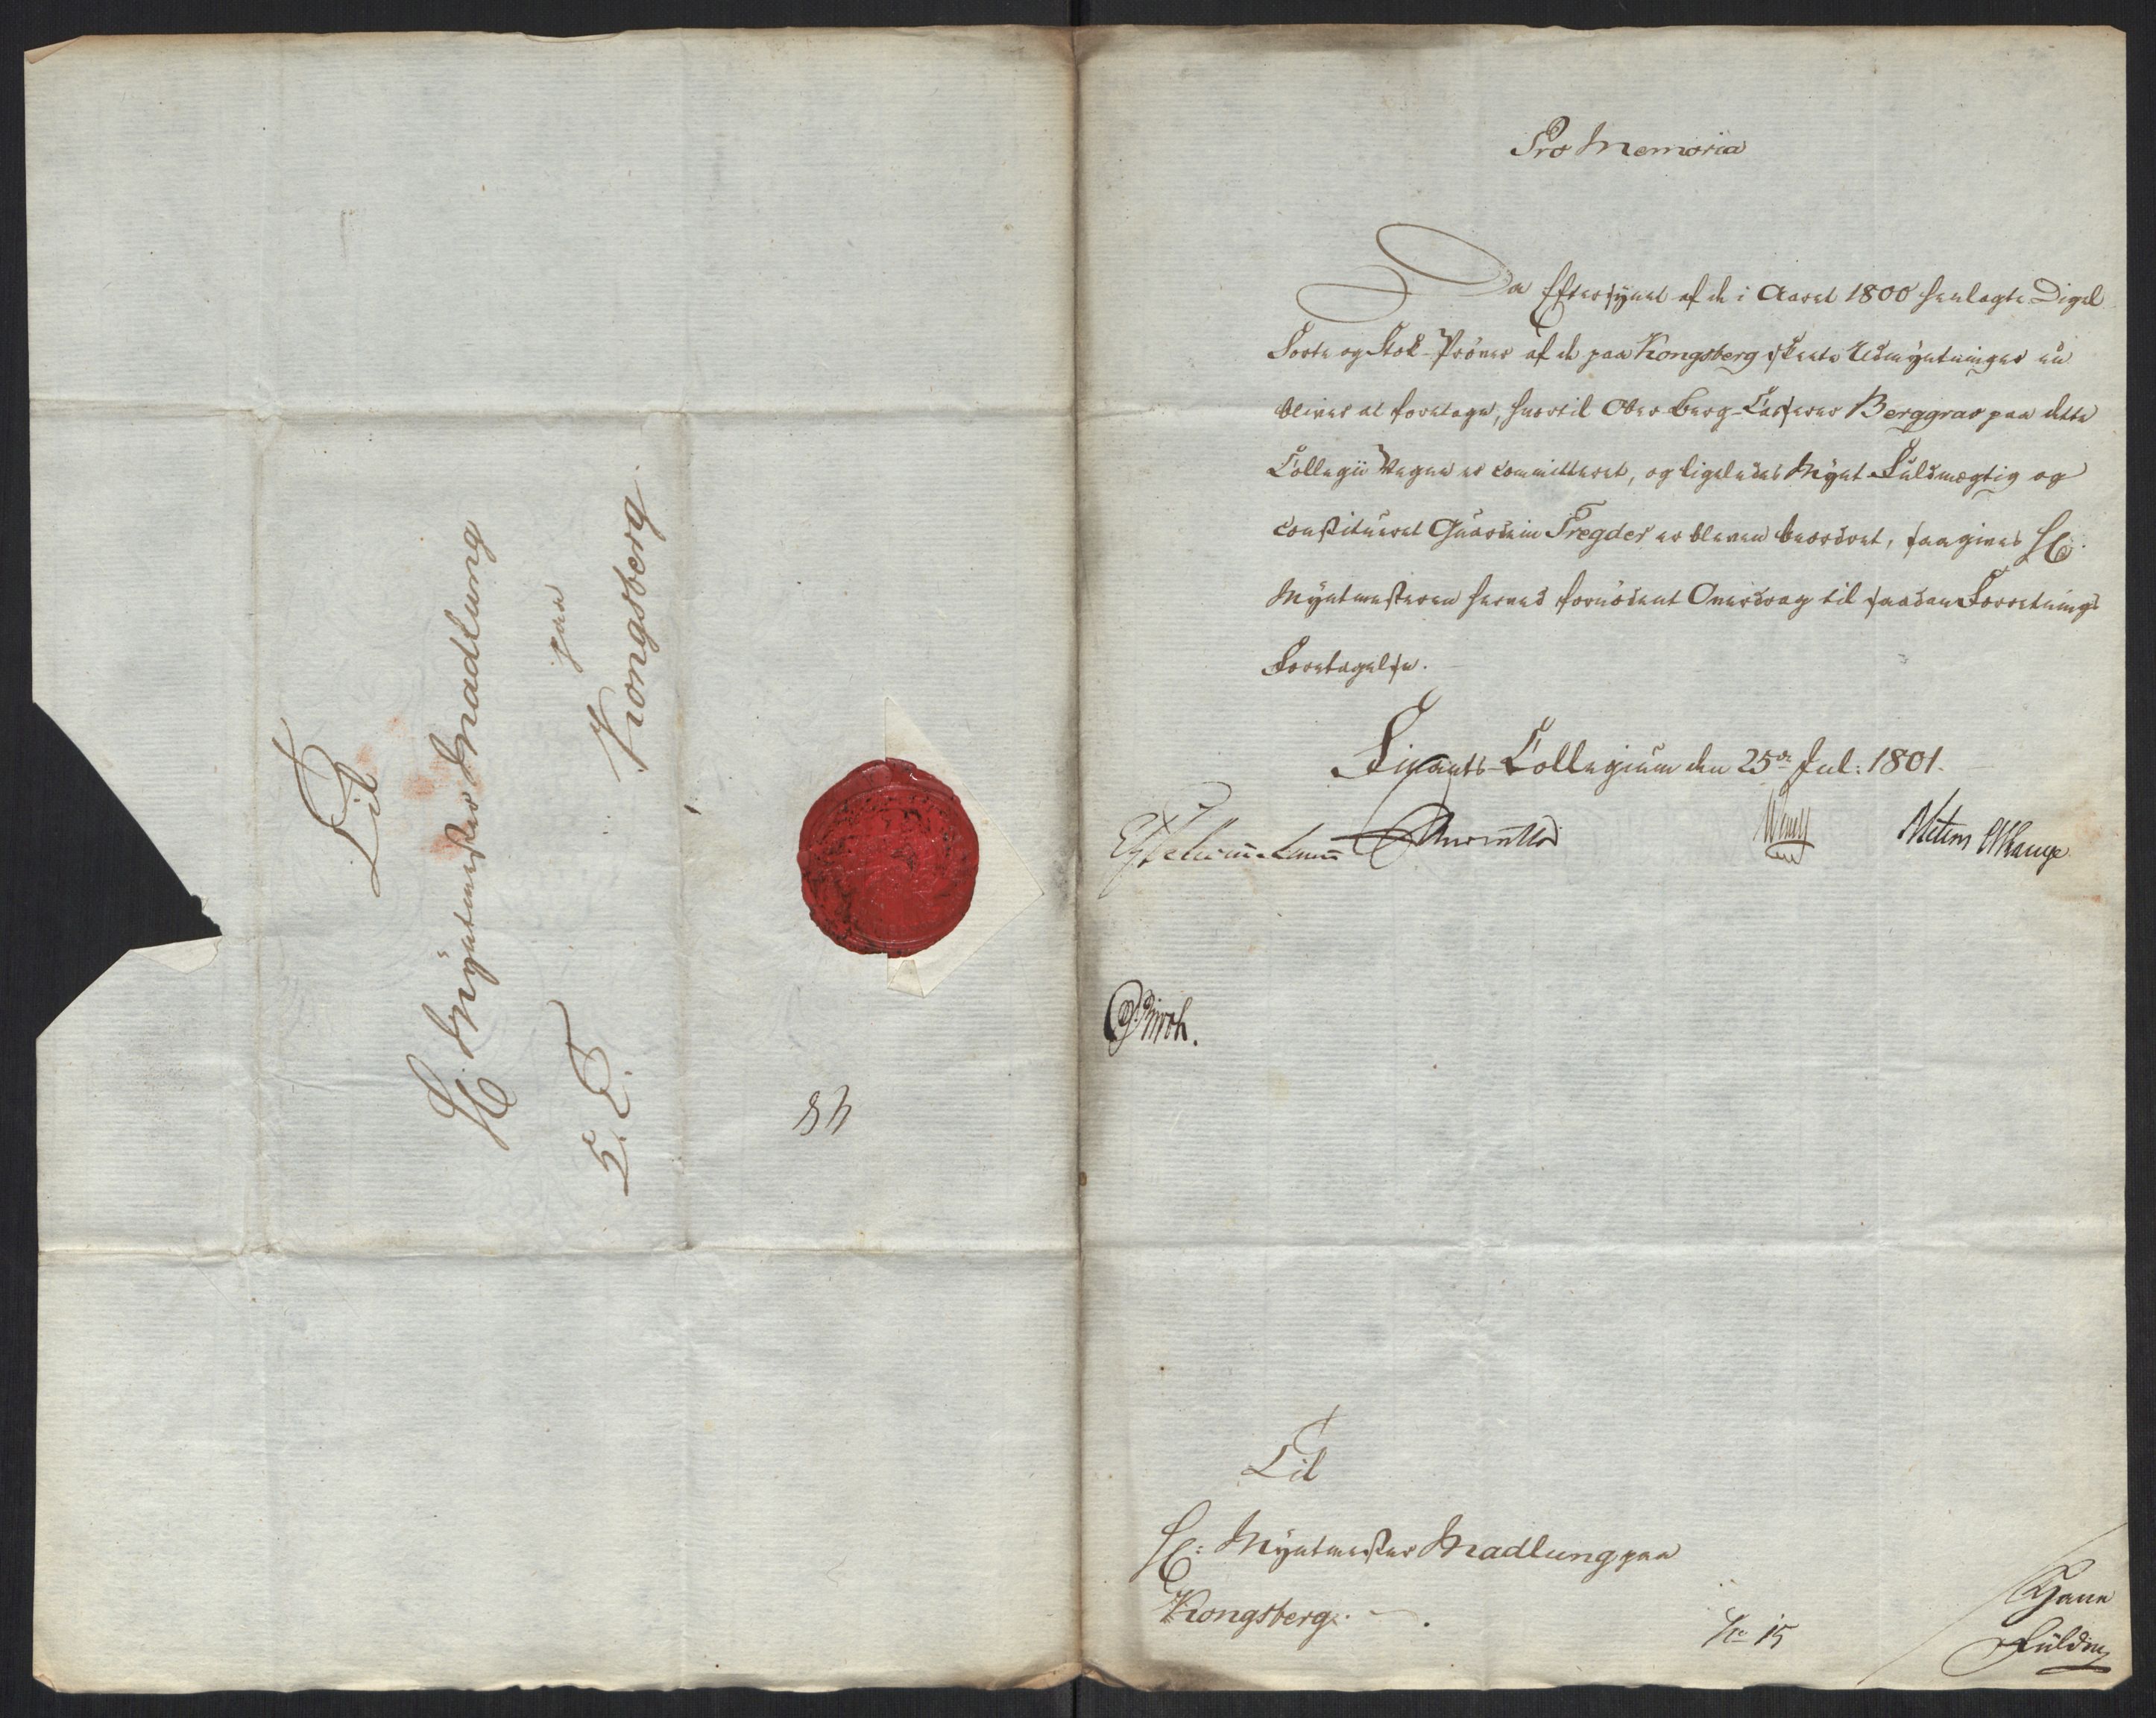 Til
H: Myntmester Madlung
paa
Kongsberg
K. T.
Pro Memoria
Da Eftersynet af de i Aaret 1800 henlagte Digel
Korte og Stok-Prøver af de paa Kongsberg skeete Udmyntninger nu
bliver at foretage, hvortil Ober Berg-Casserer Berggrav paa dette
Collegii Vegne er committeret, og ligeledes Mynt Fuldmægtig og
constitueret Guardein Tregder er bleven beordret, saa gives H:
Myntmesteren herved fornødent Overdrag til saadan Forretnings
Foretagelse.
Finants-Collegium den 25de Jul: 1801.
Schimmelmann
Wendt
Til
H: Myntmester Madlung paa
Kongsberg.
No 15